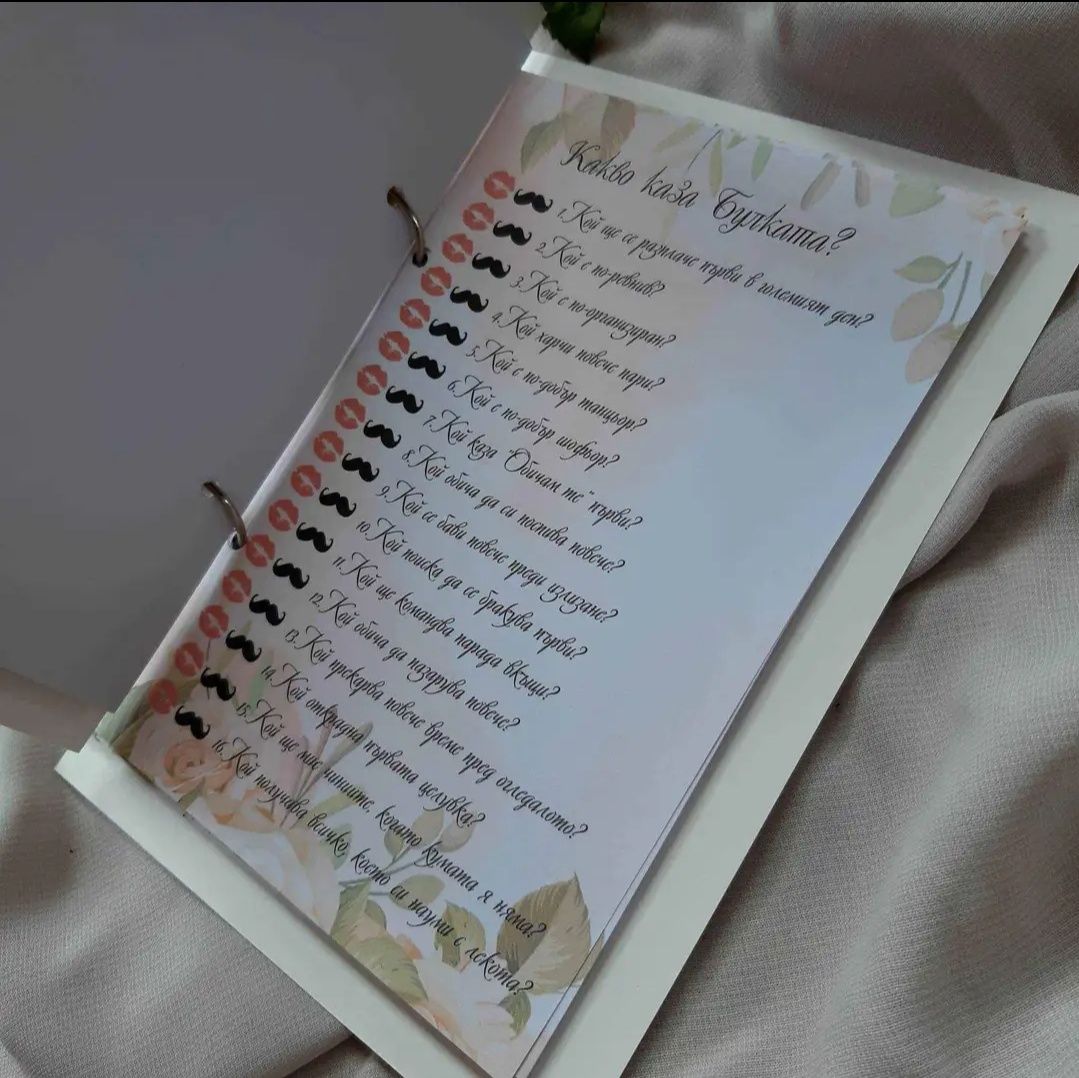 Какво каза Булката?
1.Кой ще се разплаче първи в големият ден?
2.Кой е по-ревнив?
3.Кой е по-организиран?
4.Кой харчи повече пари?
5.Кой е по-добър танцьор?
6.Кой е по-добър шофьор?
7.Кой каза "Обичам те" първи?
8.Кой обича да си поспива повече?
9.Кой се бави повече преди излизане?
10.Кой поиска да се бракува първи?
11.Кой ще командва парада вкъщи?
12.Кой обича да пазарува повече?
13.Кой прекарва повече време пред огледалото?
14.Кой открадна първата целувка?
15.Кой ще мие чиниите, когато кумата я няма?
16.Кой получава всичко, което си науми с лекота?